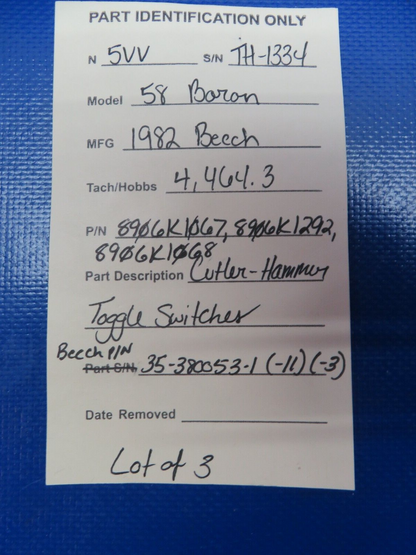 PART IDENTIFICATION ONLY
N 5VV S/N TH-1334
Model 58 Baron
MFG 1982 Beech
Tach/Hobbs 4,464.3
P/N 89Ø6K1Ø67, 89Ø6K1292,
89Ø6K1Ø68
Part Description Cutler-Hammer
Toggle Switches
Beech P/N
Part S/N. 35-380053-1 (-11) (-3)
Date Removed
Lot of 3